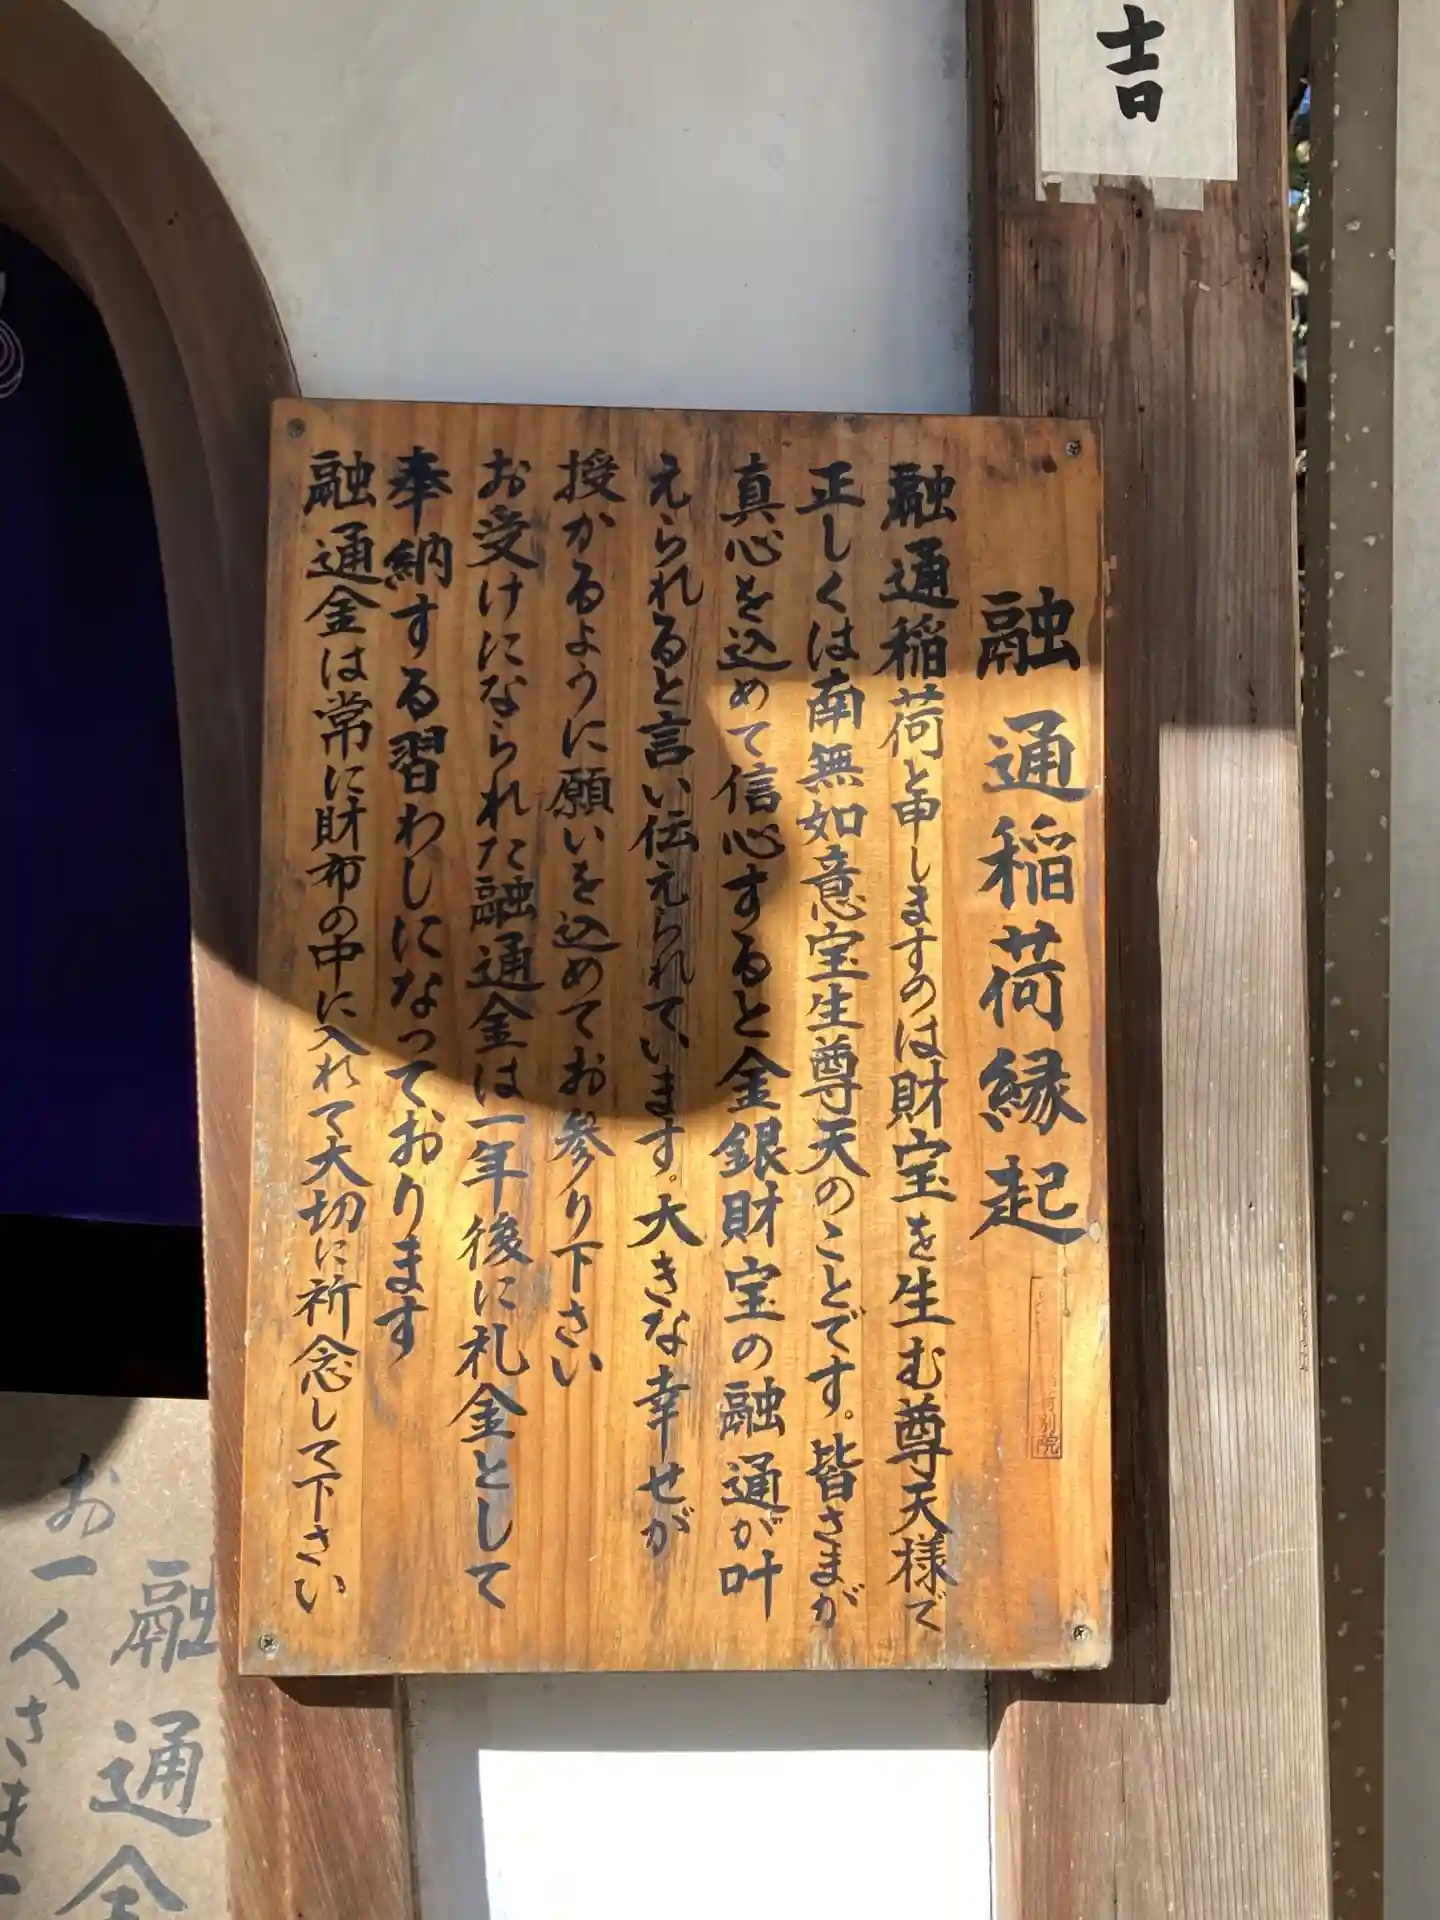 吉
融通稲荷縁起
荷別院
融通稲荷と申しますのは財宝を生む尊天様で
正しくは南無如意宝生尊天のことです。皆さまが
真心を込めて信心すると金銀財宝の融通が叶
えられると言い伝えられています。大きな幸せが
授かるように願いを込めてお参り下さい
お受けになられた融通金は一年後に礼金として
奉納する習わしになっております
融通金は常に財布の中に入れて大切に祈念して下さい
融通金
お一人さま一